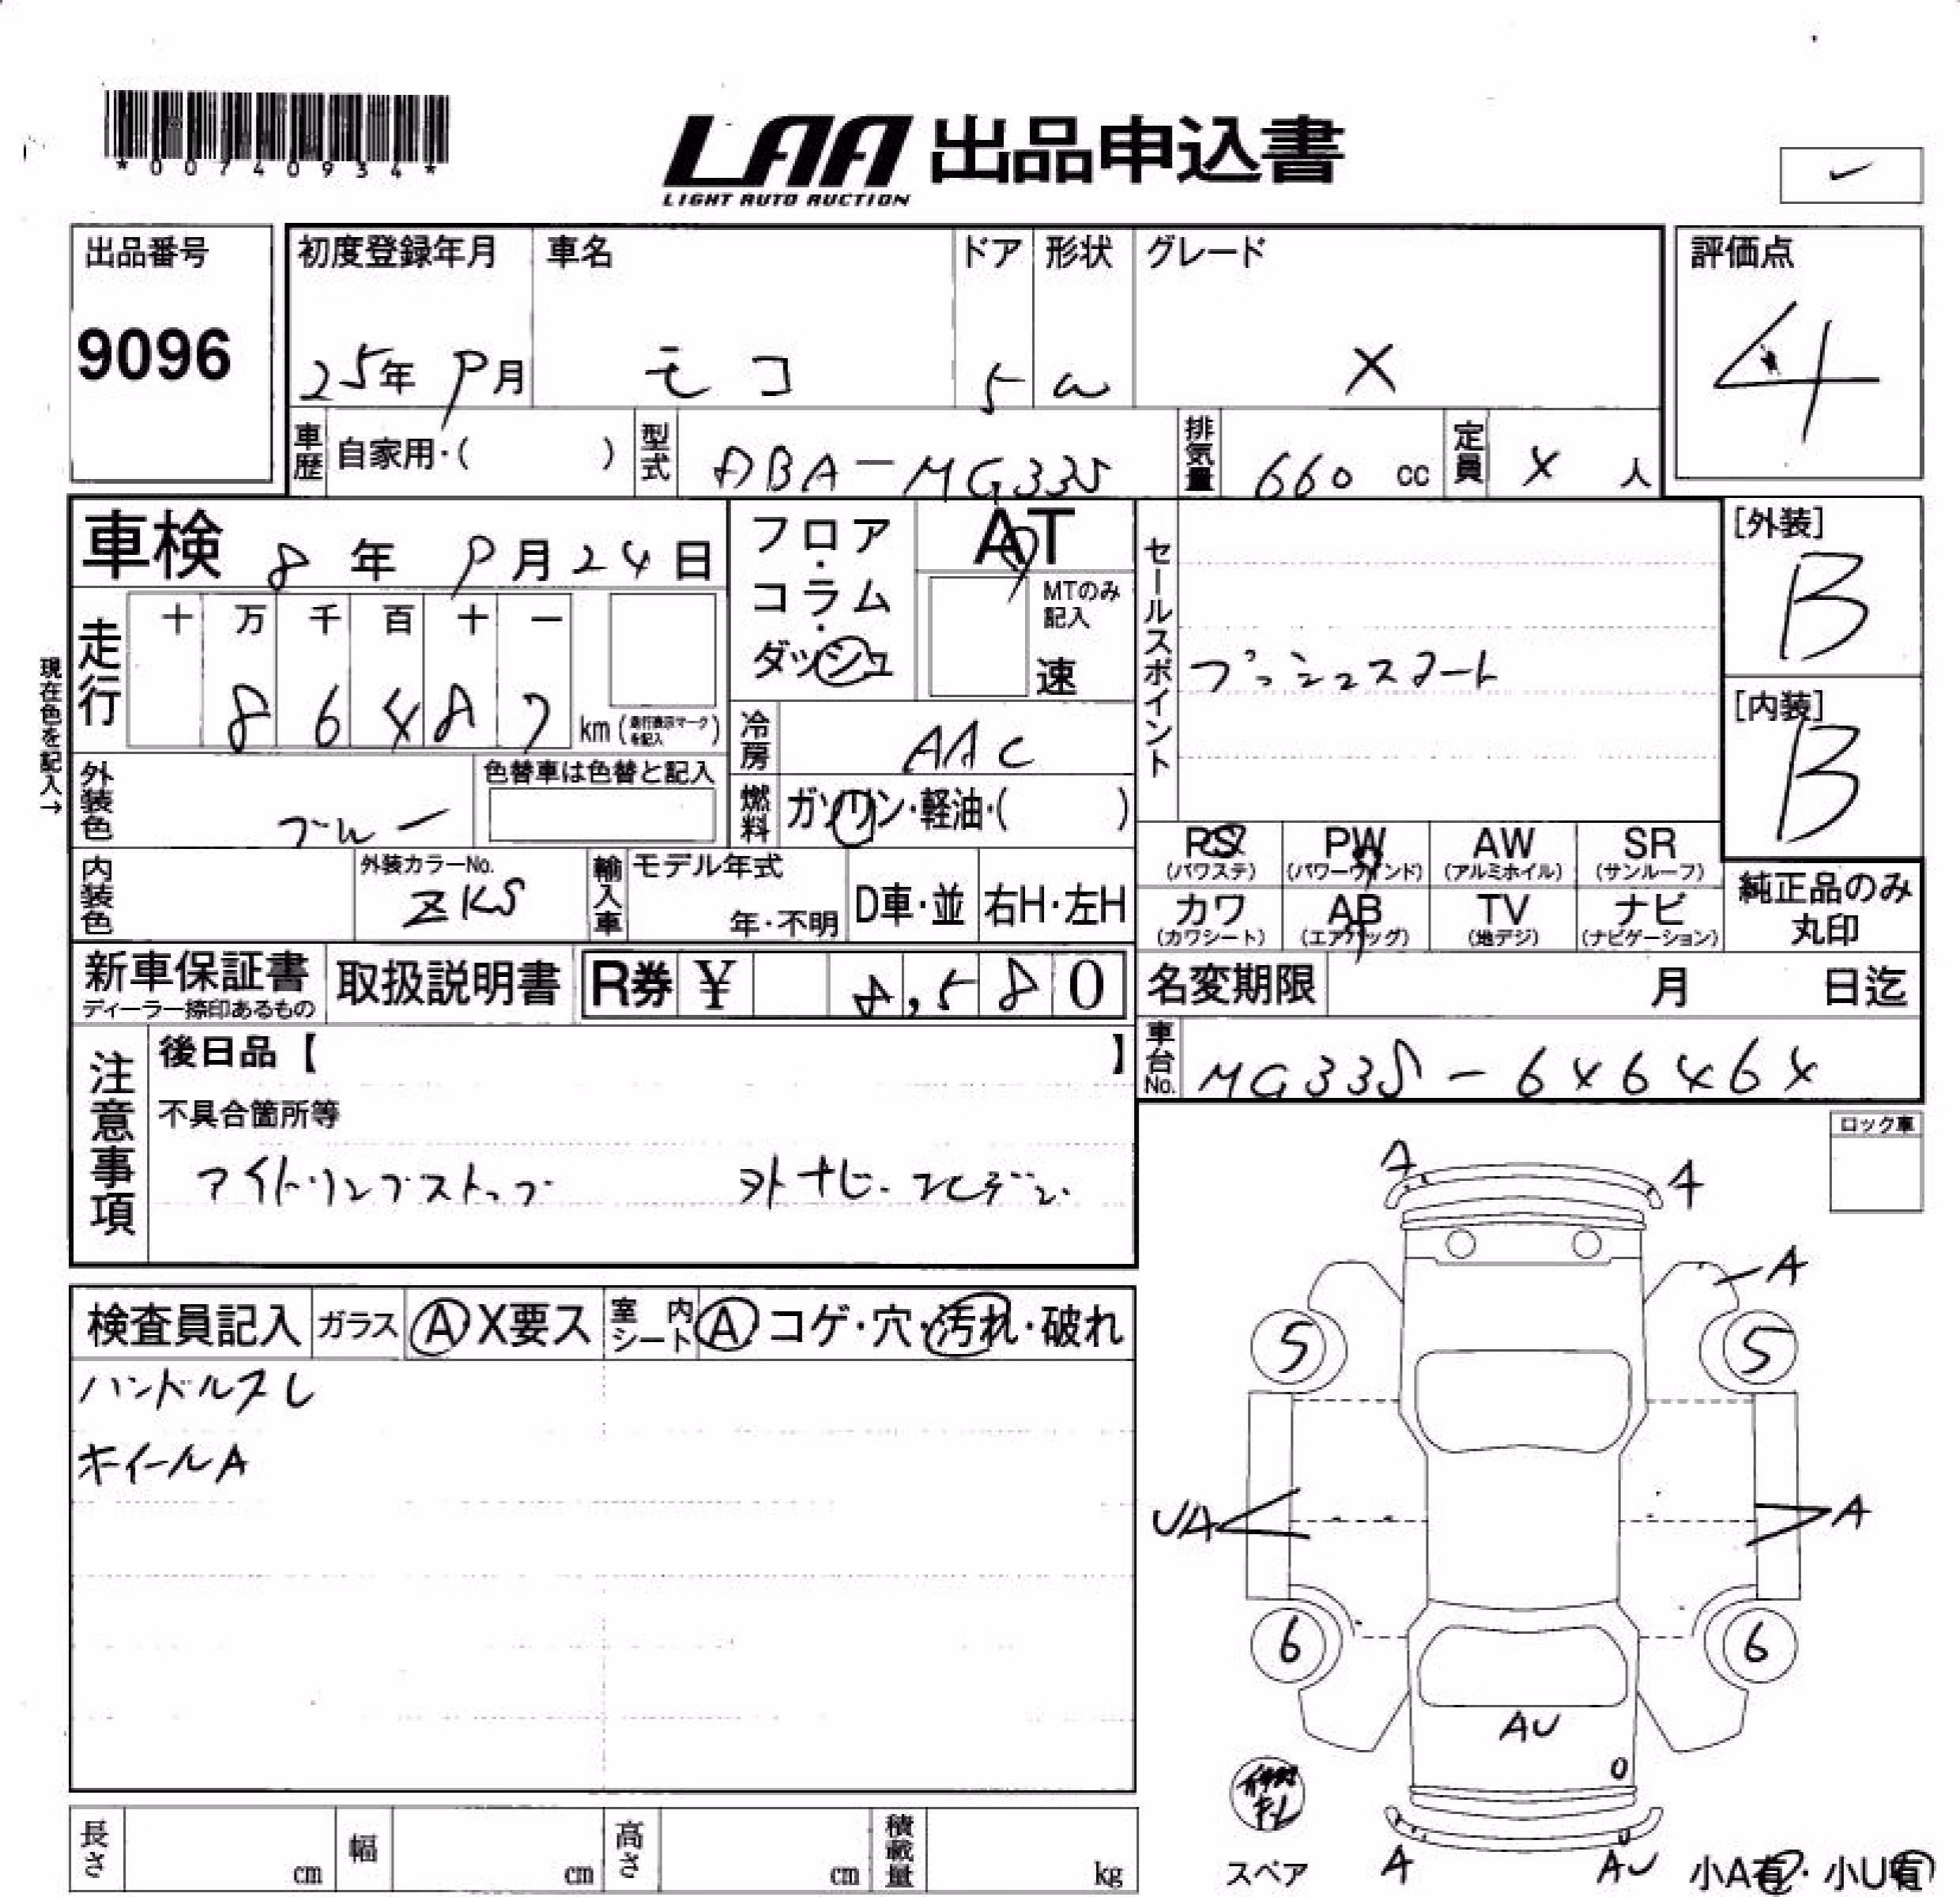 *00740934*
LAA 出品申込書
LIGHT AUTO AUCTION
出品番号
9096
初度登録年月
25年 9月
車名
モコ
ドア
5
形状
W
グレード
X
評価点
4
車歴 自家用・( )
型式 DBA-MG33S
排気量 660 cc
定員 4 人
車検 8年 9月24日
フロア・コラム・ダッシュ
AT
MTのみ記入
速
走行
十 万 千 百 十 一
8 6 4 8 7
km (走行表示マークを記入)
現在色を記入→
外装色 ブルー
色替車は色替と記入
冷房 AAC
燃料 ガソリン・軽油・( )
内装色
外装カラーNo.
ZKS
輸入車
モデル年式
年・不明
D車・並
右H・左H
セールスポイント
プッシュスタート
[外装]
B
[内装]
B
PS (パワステ)
PW (パワーウィンド)
AW (アルミホイル)
SR (サンルーフ)
カワ (カワシート)
AB (エアバッグ)
TV (地デジ)
ナビ (ナビゲーション)
純正品のみ丸印
新車保証書
ディーラー捺印あるもの
取扱説明書
R券 ¥ 8,580
名変期限 月 日迄
車台No. MG33S-646464
注意事項
後日品【 】
不具合箇所等
アイドリングストップ 外ナビ.
ロック車
検査員記入
ガラス A X要ス
室内シート A コゲ・穴・汚れ・破れ
ハンドルスレ
ホイールA
A A
A
5 5
UA A
6 6
AU
スペア
A AU
小A有・小U有
長さ cm
幅 cm
高さ cm
積載量 kg